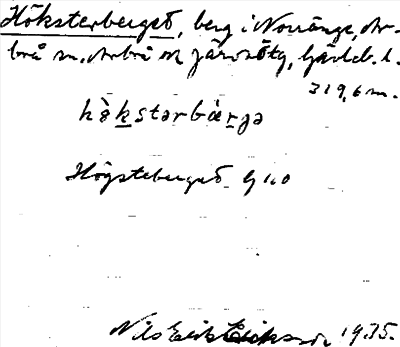 Höksterberget, berg i Norränge, Ar-
brå sn, Arbrå o Järvsö tg, Gävleb. l.
319,6 m.
hø̀kstərbæ̀rjə
Högsteberget G 110
Nils Erik Eriksson 1935.